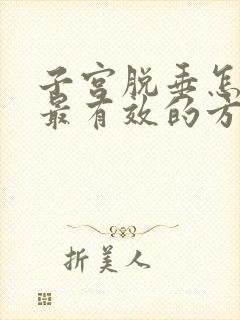 子宫脱垂怎
最有效的方
折美人